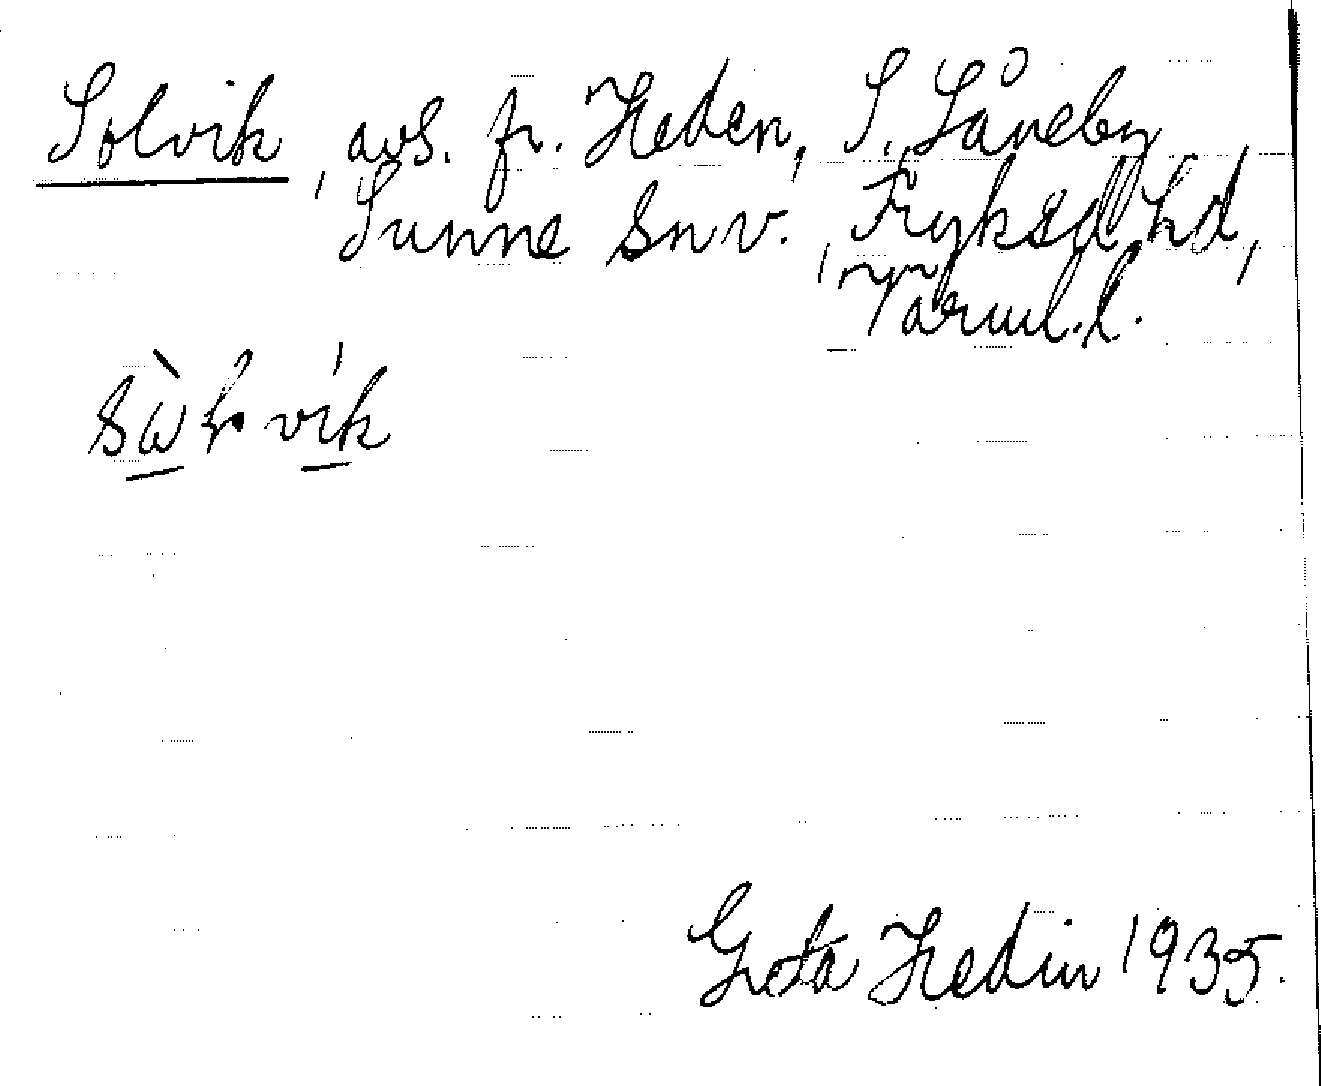 Solvik, avs. fr. Heden, S. Låneby,
Sunne sn v., Fryksd. hd,
Värml. l.
Gota Hedin 1935.